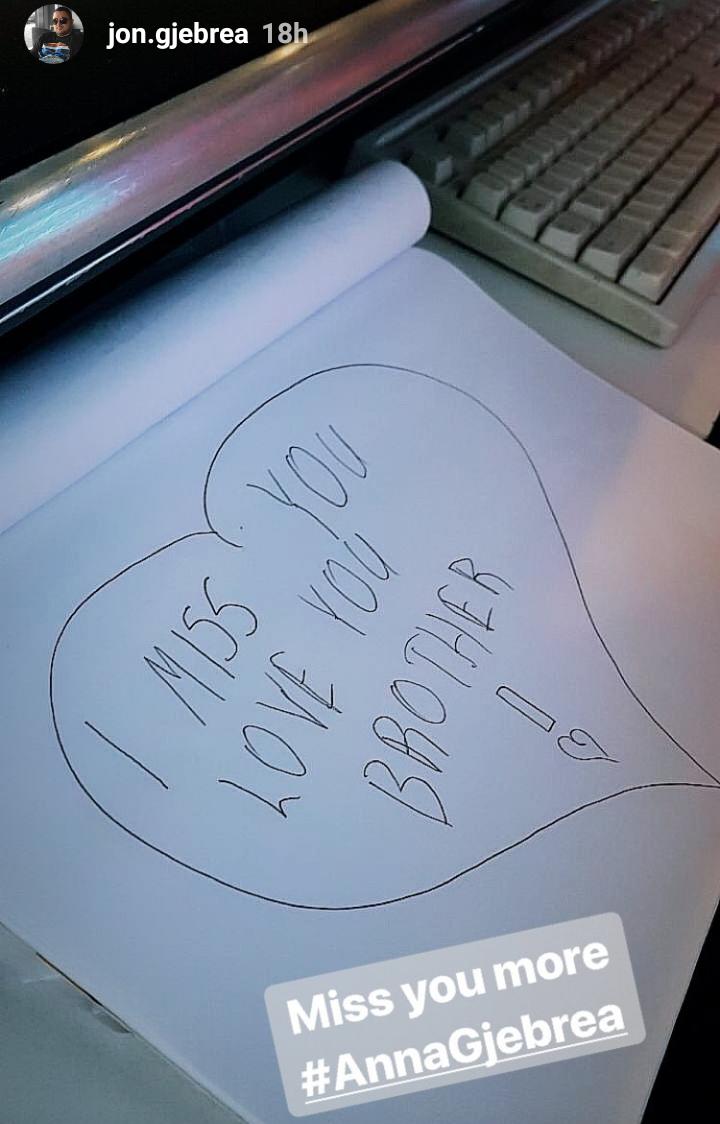 jon.gjebrea 18h
I MISS YOU
LOVE YOU
BROTHER
Miss you more
#AnnaGjebrea